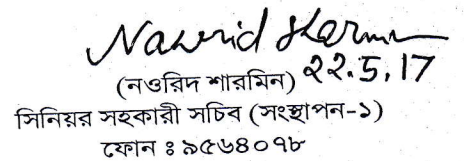 Nawrid Sharmin
(নওরিদ শারমিন) 22.5.17
সিনিয়র সহকারী সচিব (সংস্থাপন-১)
ফোন ঃ ৯৫৬৪০৭৮